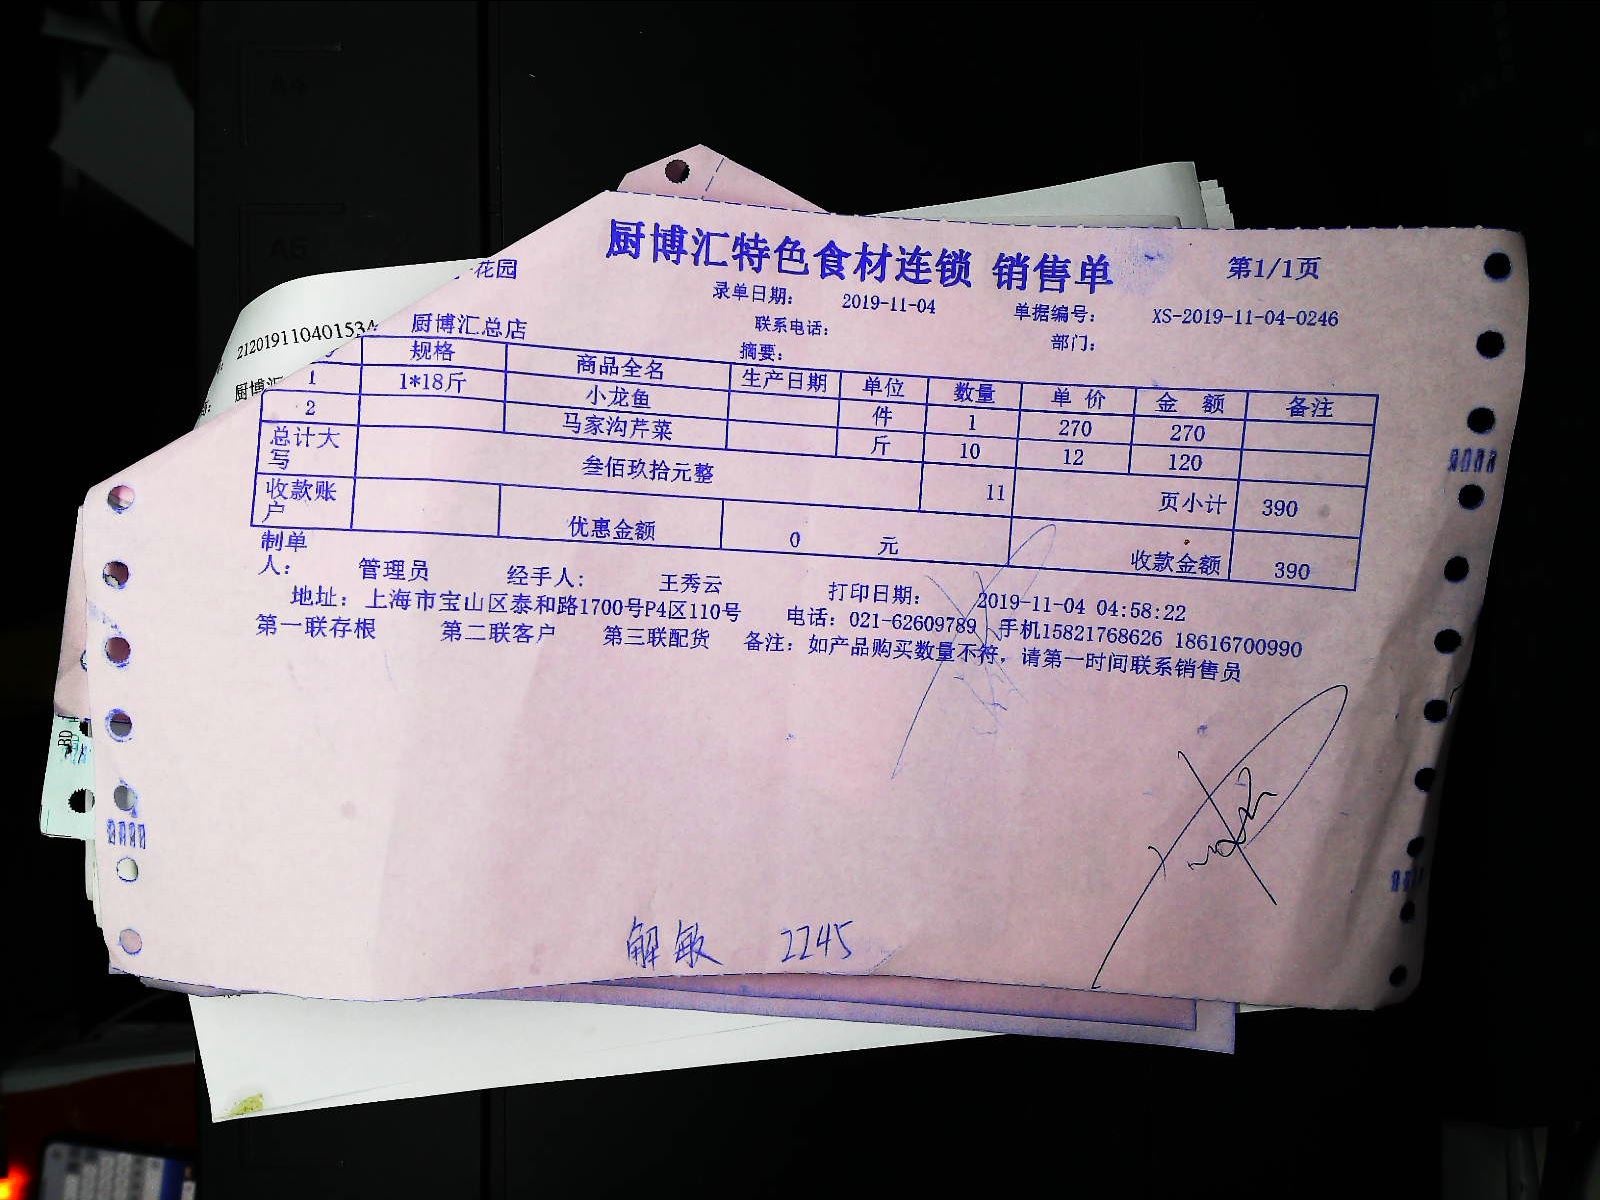 厨博汇特色食材连锁 销售单 第1/1页
花园 录单日期: 2019-11-04 单据编号: XS-2019-11-04-0246
212019110401534 厨博汇总店 联系电话: 部门:
摘要:
厨博汇
规格 商品全名 生产日期 单位 数量 单价 金额 备注
1 1*18斤 小龙鱼 件 1 270 270
2 马家沟芹菜 斤 10 12 120
总计大写 叁佰玖拾元整 11 页小计 390
收款账户 优惠金额 0 元 收款金额 390
制单人: 管理员 经手人: 王秀云 打印日期: 2019-11-04 04:58:22
地址: 上海市宝山区泰和路1700号P4区110号 电话: 021-62609789 手机15821768626 18616700990
第一联存根 第二联客户 第三联配货 备注: 如产品购买数量不符, 请第一时间联系销售员
解敏 2245